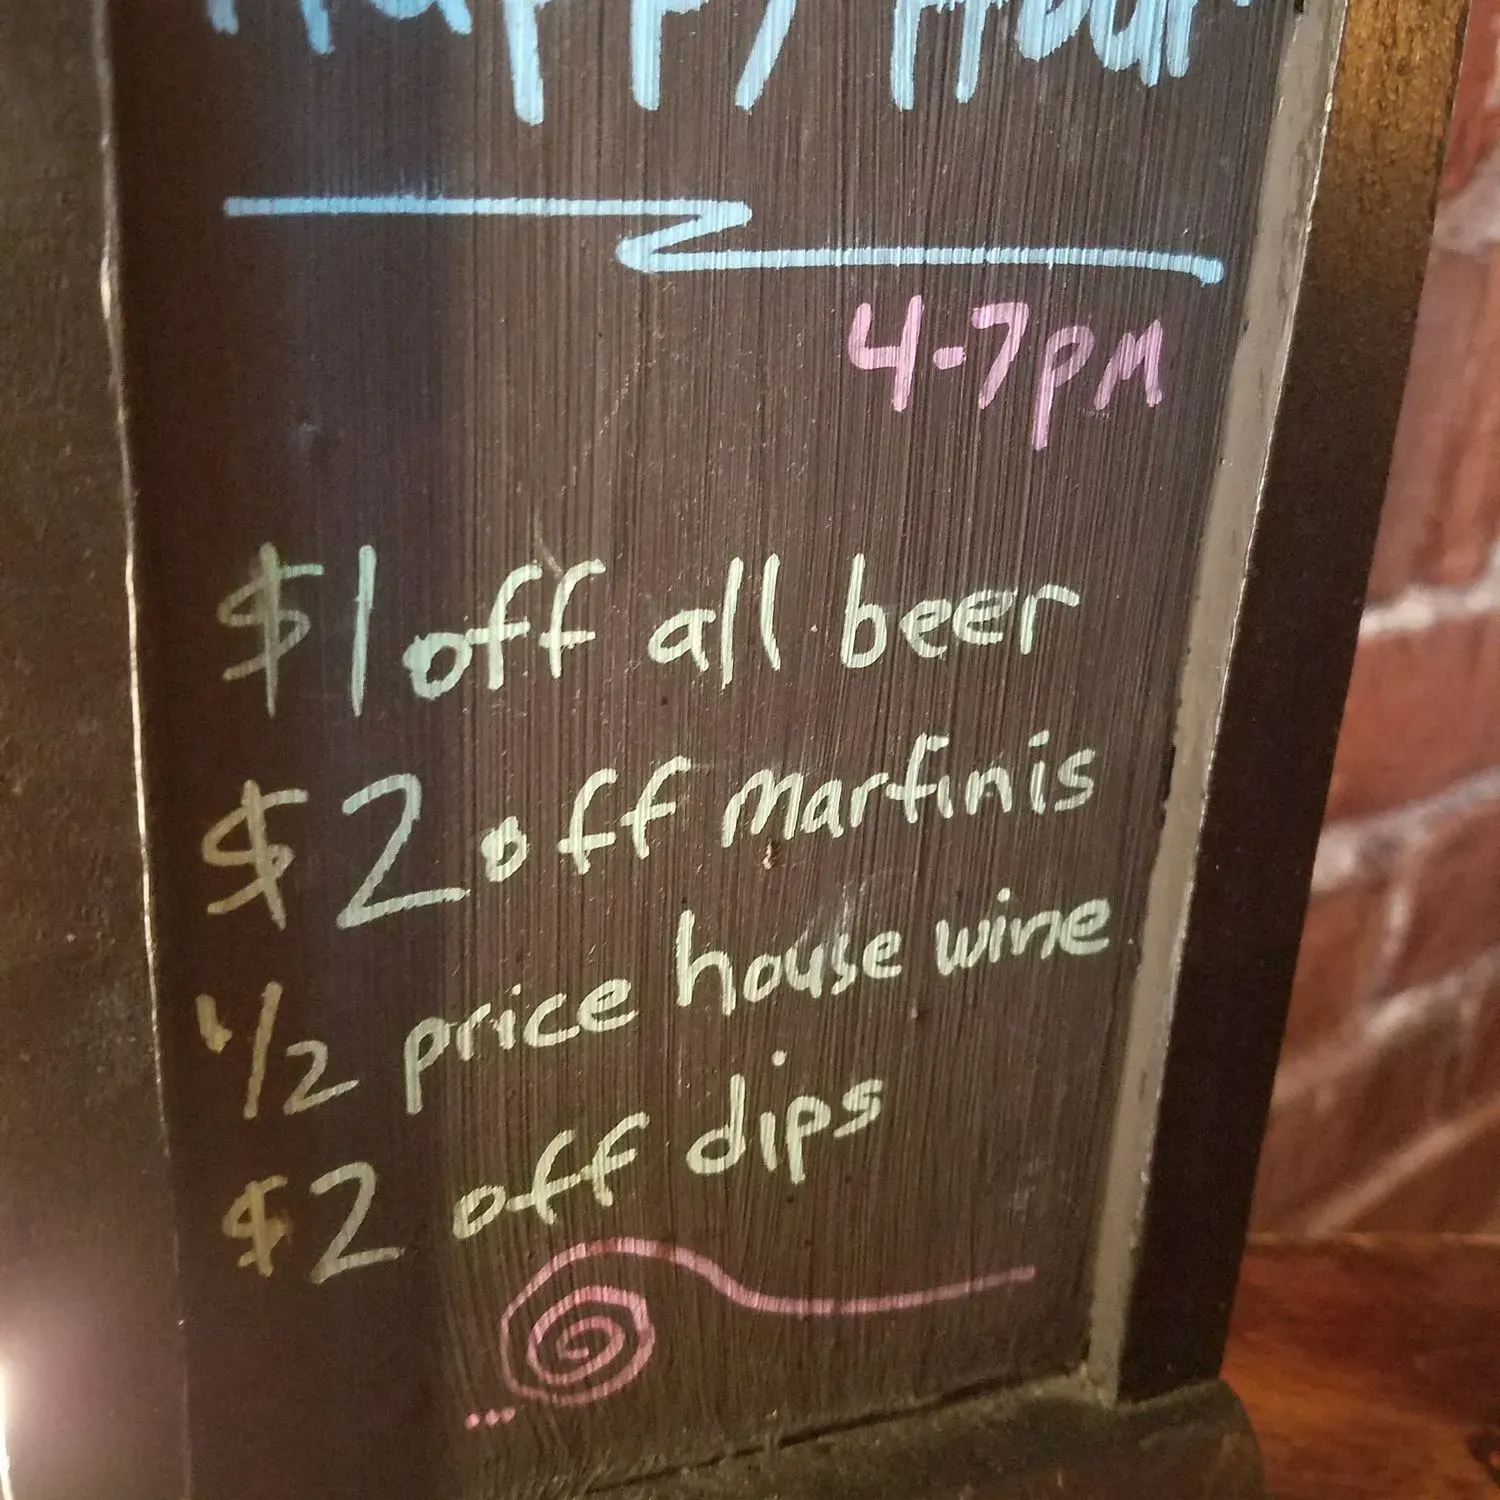 Happy Hour
4-7pm
$1 off all beer
$2 off martinis
1/2 price house wine
$2 off dips